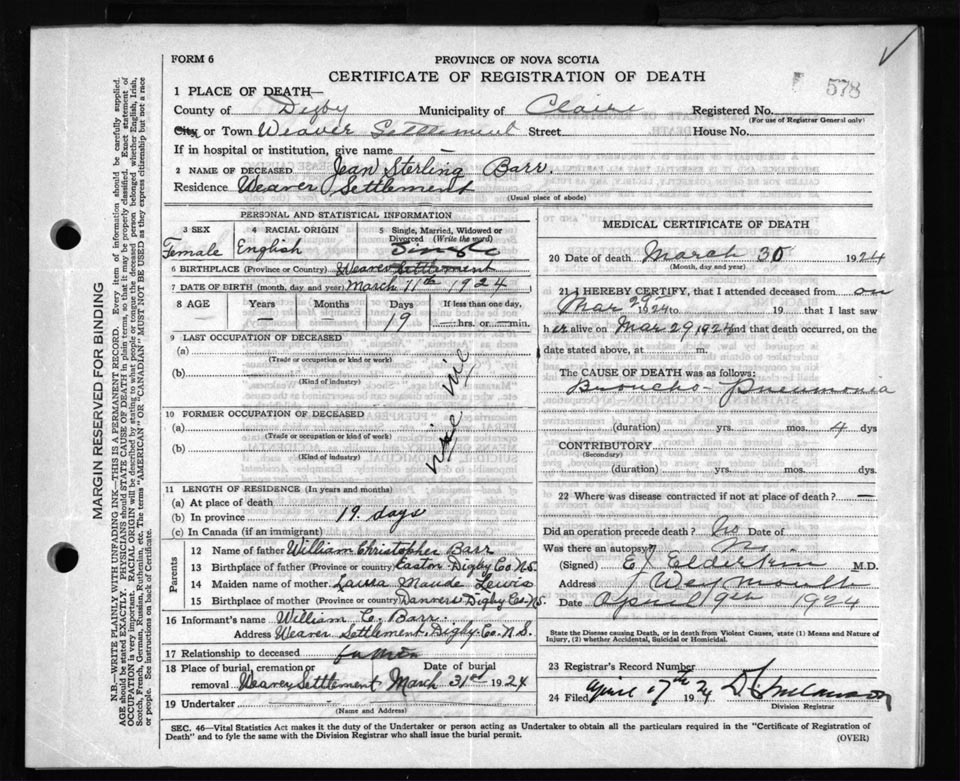 FORM 6
PROVINCE OF NOVA SCOTIA
CERTIFICATE OF REGISTRATION OF DEATH
578
1 PLACE OF DEATH—
County of Digby Municipality of Claire Registered No.
(For use of Registrar General only)
City or Town Weaver Settlement Street House No.
If in hospital or institution, give name —
2 NAME OF DECEASED Jean Sterling Barr.
Residence Weaver Settlement
(Usual place of abode)
PERSONAL AND STATISTICAL INFORMATION
3 SEX
Female
4 RACIAL ORIGIN
English
5 Single, Married, Widowed or Divorced (Write the word)
Single
6 BIRTHPLACE (Province or Country) Weaver Settlement
7 DATE OF BIRTH (month, day and year) March 11th 1924
8 AGE Years Months Days If less than one day,
— — 19 hrs. or min.
9 LAST OCCUPATION OF DECEASED
(a)
(Trade or occupation or kind of work)
(b)
(Kind of industry)
nil
10 FORMER OCCUPATION OF DECEASED
(a)
(Trade or occupation or kind of work)
(b)
(Kind of industry)
11 LENGTH OF RESIDENCE (In years and months)
(a) At place of death
(b) In province 19. days
(c) In Canada (if an immigrant)
Parents
12 Name of father William Christopher Barr
13 Birthplace of father (Province or country) Easton Digby Co N.S.
14 Maiden name of mother Laura Maude Lewis
15 Birthplace of mother (Province or country) Danvers Digby Co. N.S.
16 Informant's name William C. Barr.
Address Weaver Settlement, Digby Co. N.S.
17 Relationship to deceased father
18 Place of burial, cremation or removal Weaver Settlement Date of burial March 31st 1924
19 Undertaker
(Name and Address)
MEDICAL CERTIFICATE OF DEATH
20 Date of death March 30 1924
(Month, day and year)
21 I HEREBY CERTIFY, that I attended deceased from on
Mar 29 1924 to 19 that I last saw
her alive on Mar 29 1924 and that death occurred, on the
date stated above, at m.
The CAUSE OF DEATH was as follows:
Broncho-Pneumonia
(duration) yrs. mos. 4 dys
CONTRIBUTORY
(Secondary)
(duration) yrs. mos. dys.
22 Where was disease contracted if not at place of death? —
Did an operation precede death? No Date of
Was there an autopsy? No
(Signed) Elderkin M.D.
Address Weymouth
Date April 9th 1924
State the Disease causing Death, or in death from Violent Causes, state (1) Means and Nature of
Injury, (2) whether Accidental, Suicidal or Homicidal.
23 Registrar's Record Number
24 Filed April 17th 1924
Division Registrar
SEC. 46—Vital Statistics Act makes it the duty of the Undertaker or person acting as Undertaker to obtain all the particulars required in the "Certificate of Registration of
Death" and to fyle the same with the Division Registrar who shall issue the burial permit.
(OVER)
MARGIN RESERVED FOR BINDING
N.B.—WRITE PLAINLY WITH UNFADING INK—THIS IS A PERMANENT RECORD. Every item of information should be carefully supplied.
AGE should be stated EXACTLY. PHYSICIANS should STATE CAUSE OF DEATH in plain terms, so that it may be properly classified. Exact statement of
OCCUPATION is very important. RACIAL ORIGIN will be described by stating to what people or tongue the deceased person belonged whether English, Irish,
Scotch, French, German, Russian, Ruthenian, etc. The terms "AMERICAN" OR "CANADIAN" MUST NOT BE USED as they express citizenship but not a race
or people. See instructions on back of Certificate.